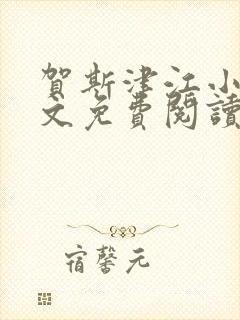 賀斯津江小
文免費閱讀
宿馨元